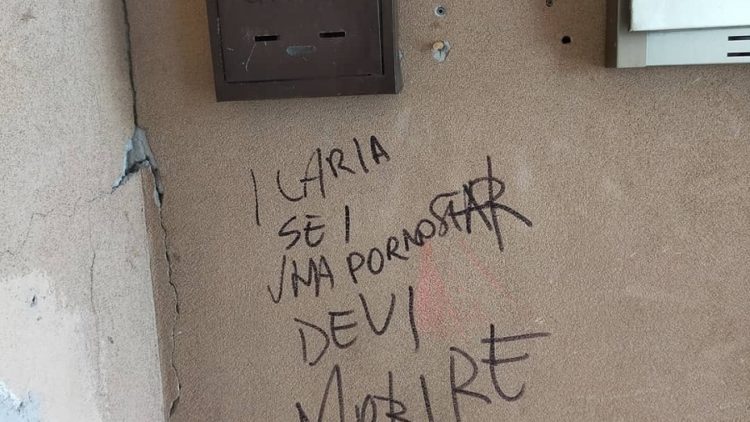 ILARIA
SEI
UNA PORNOSTAR
DEVI
MORIRE